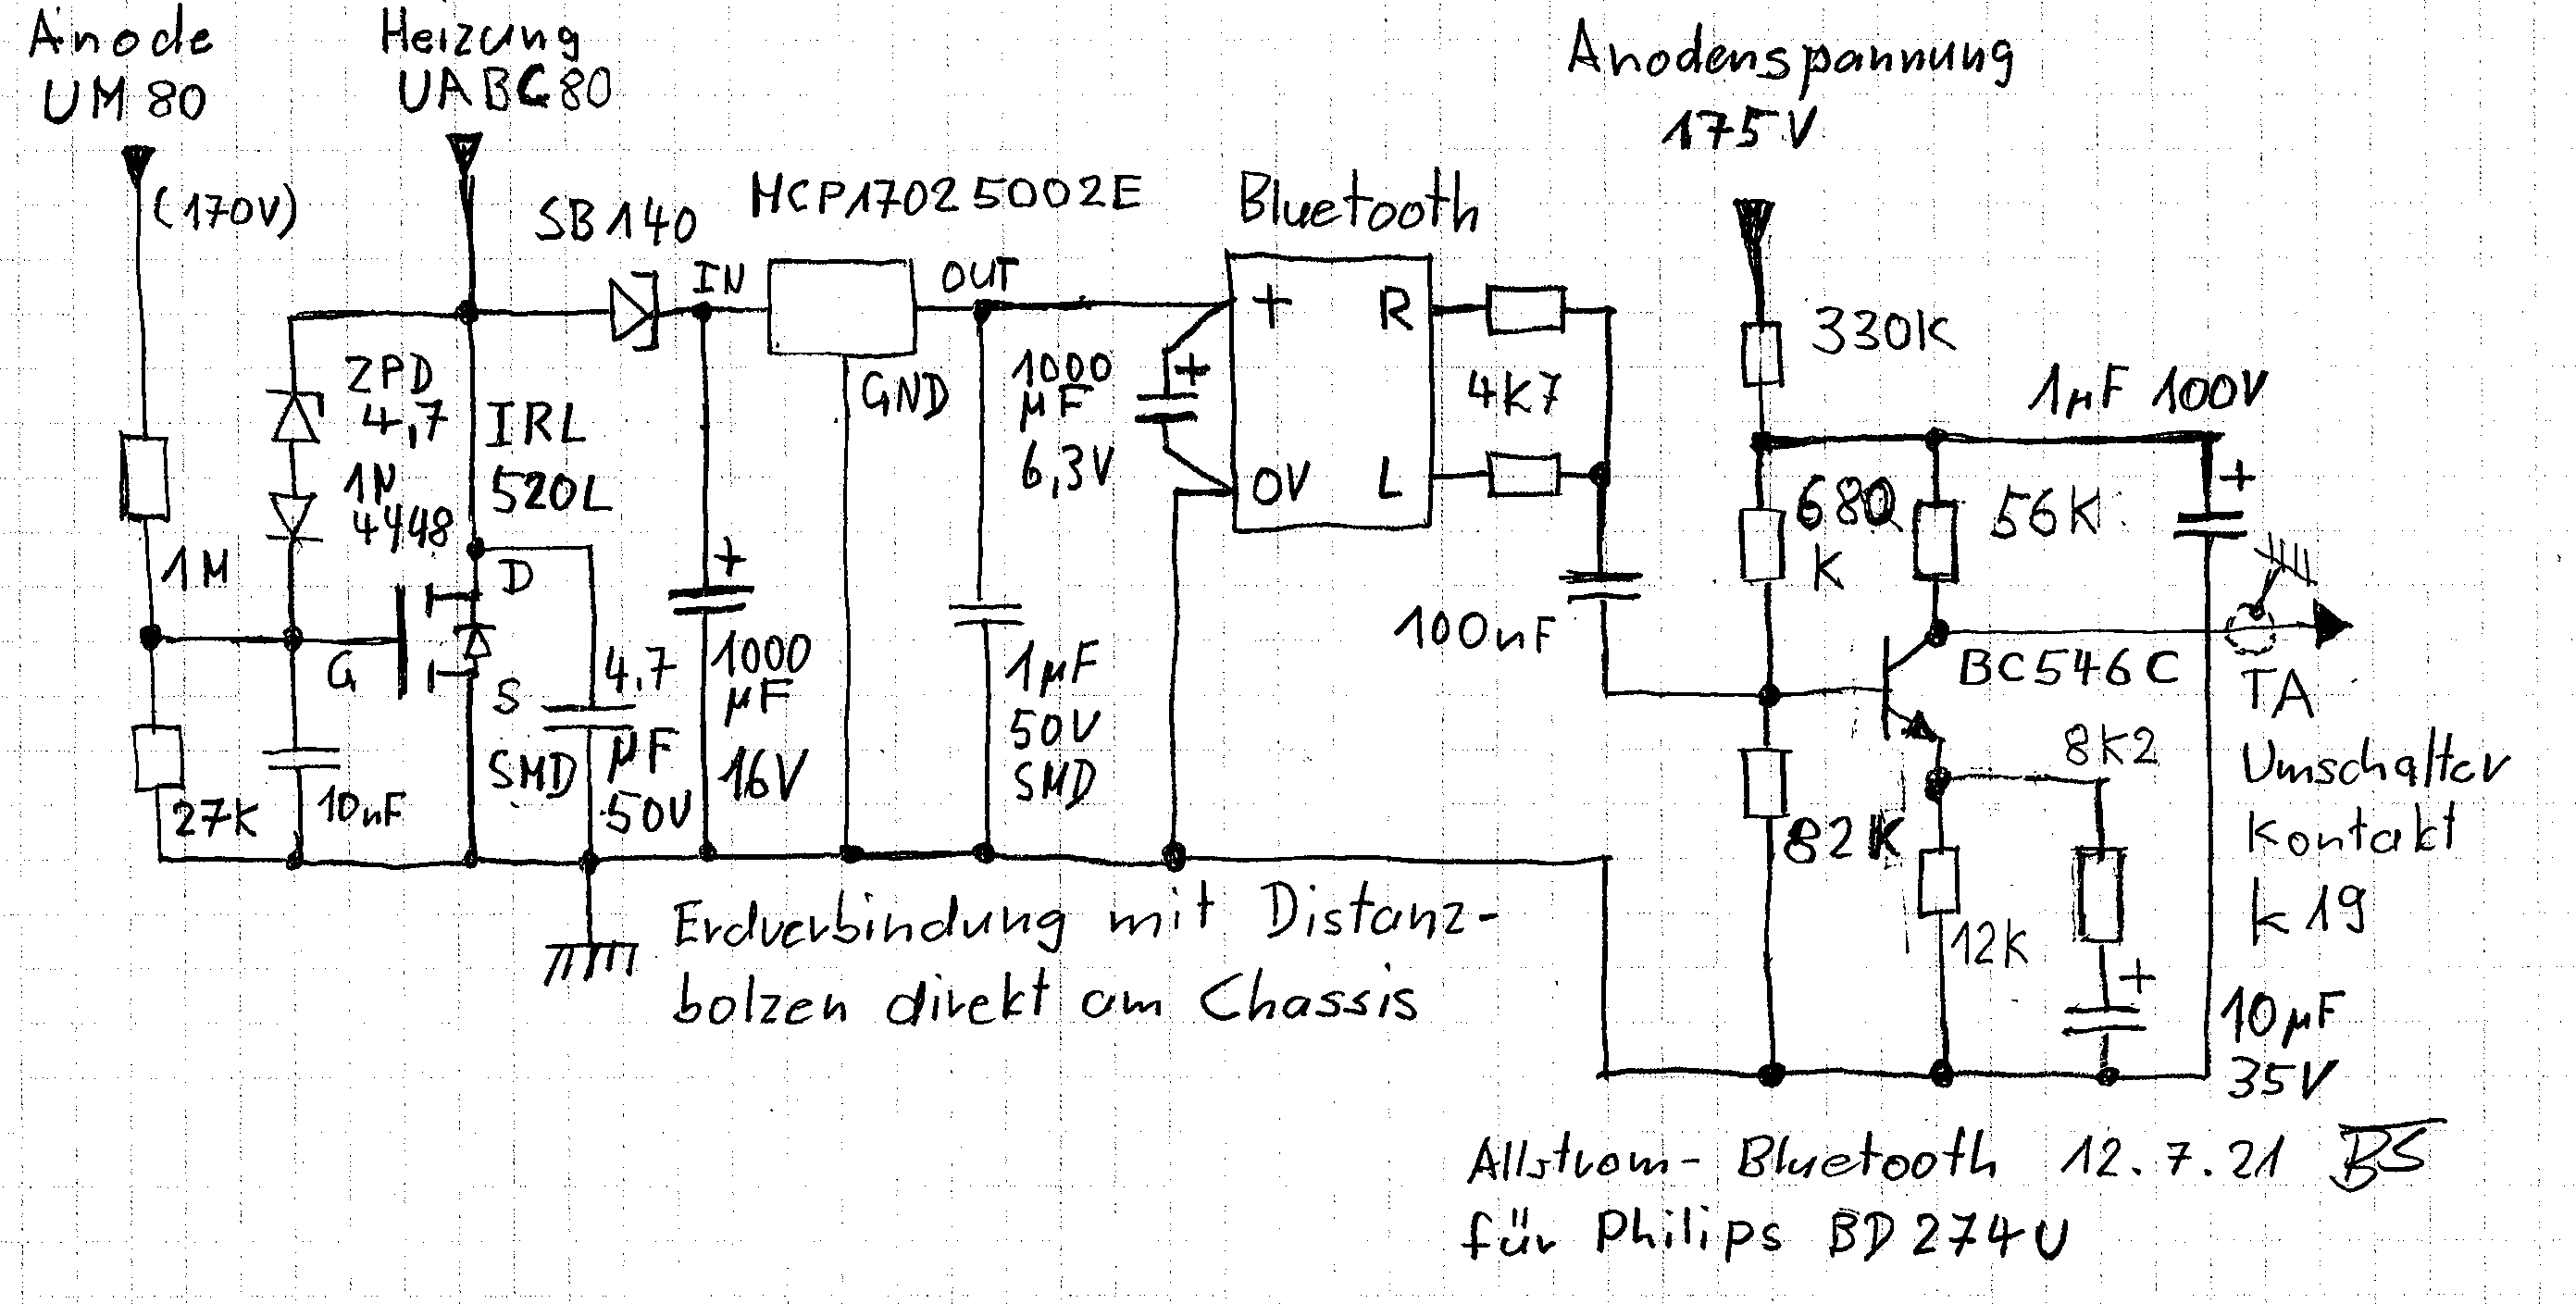 Anode
UM 80
(170V)
Heizung
UABC80
SB140
MCP1702 5002E
IN
OUT
GND
Bluetooth
+
R
0V
L
4K7
1000
µF
6,3V
+
ZPD
4,7
1N
4448
IRL
520L
1M
G
D
S
27K
10nF
4,7
µF
50V
SMD
+
1000
µF
16V
1µF
50V
SMD
100nF
Anodenspannung
175V
330K
1µF 100V
+
680
K
56K
BC546C
82K
8K2
12K
+
10µF
35V
TA
Umschalter
Kontakt
K19
Erdverbindung mit Distanz-
bolzen direkt am Chassis
Allstrom-Bluetooth 12.7.21 BS
für Philips BD 274U